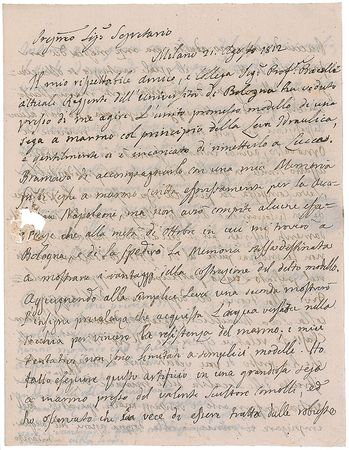 Segretario
Milano 21. 1812
Il mio rispettabile amico, e Collega Sig. Prof.
attuale Reggente dell'Università di Bologna ha veduto
presso di me l'unito promesso modello di una
sega a marmo col principio della Leva Idraulica,
e gentilmente si è incaricato di rimetterlo a Lucca.
Bramavo di accompagnarlo con una mia Memoria
a marmo scritta espressamente per la
Napoleone, ma non avrò compite alcune
che alla metà di Ottobre in cui mi trovo a
Bologna, e di là spedirò. La Memoria sarà destinata
a mostrare i vantaggi nella costruzione del detto modello.
Aggiungendo alla semplice Leva una seconda mostrerò
che acquista l'acqua versata nella
secchia per vincere la resistenza del marmo. I miei
tentativi non sono limitati a semplici modelli. Ho
fatto eseguire questo artificio in una grandiosa sega
a marmo presso del valente scultore ed
ho osservato che in vece di essere tratta dalle robuste